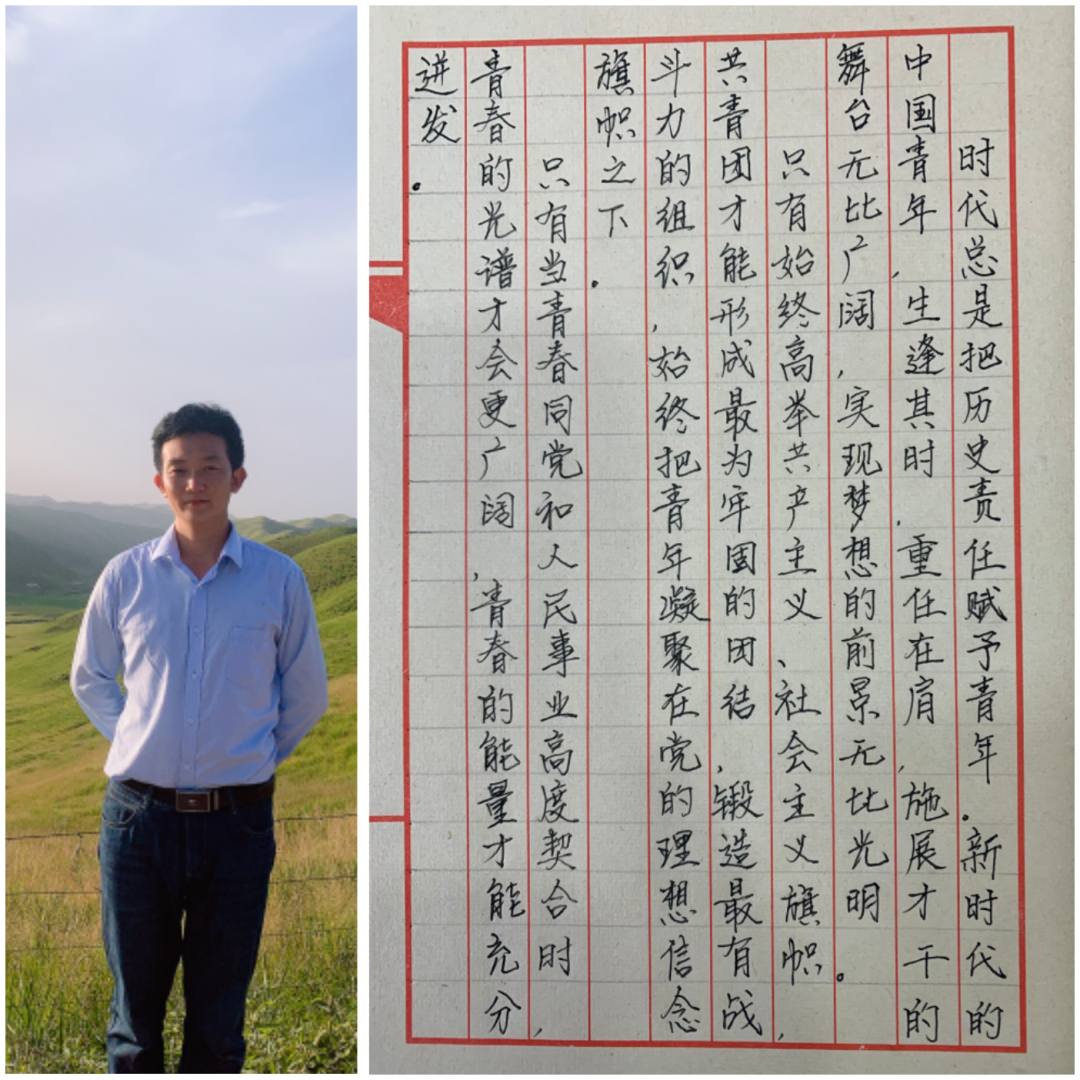 时代总是把历史责任赋予青年。新时代的
中国青年，生逢其时，重任在肩，施展才干的
舞台无比广阔，实现梦想的前景无比光明。
只有始终高举共产主义、社会主义旗帜，
共青团才能形成最为牢固的团结，锻造最有战
斗力的组织，始终把青年凝聚在党的理想信念
旗帜之下。
只有当青春同党和人民事业高度契合时，
青春的光谱才会更广阔，青春的能量才能充分
迸发。